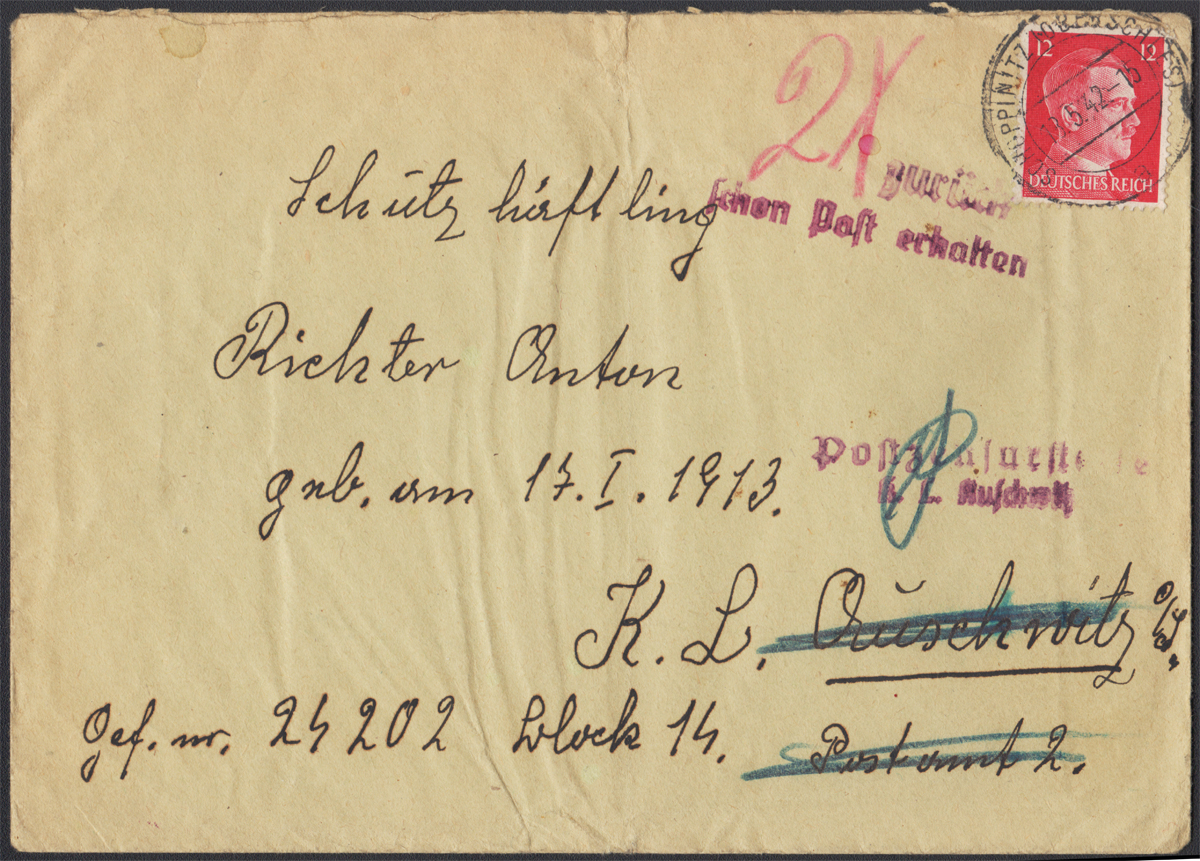 2x
12 12
DEUTSCHES REICH
.5.42-15
zurück
schon Post erhalten
Schutzhäftling
Richter Anton
geb. am 17. I. 1913.
Postzensurstelle
K. L. Auschwitz
K. L. Auschwitz O/S.
Gef. nr. 24202 Block 14. Postamt 2.